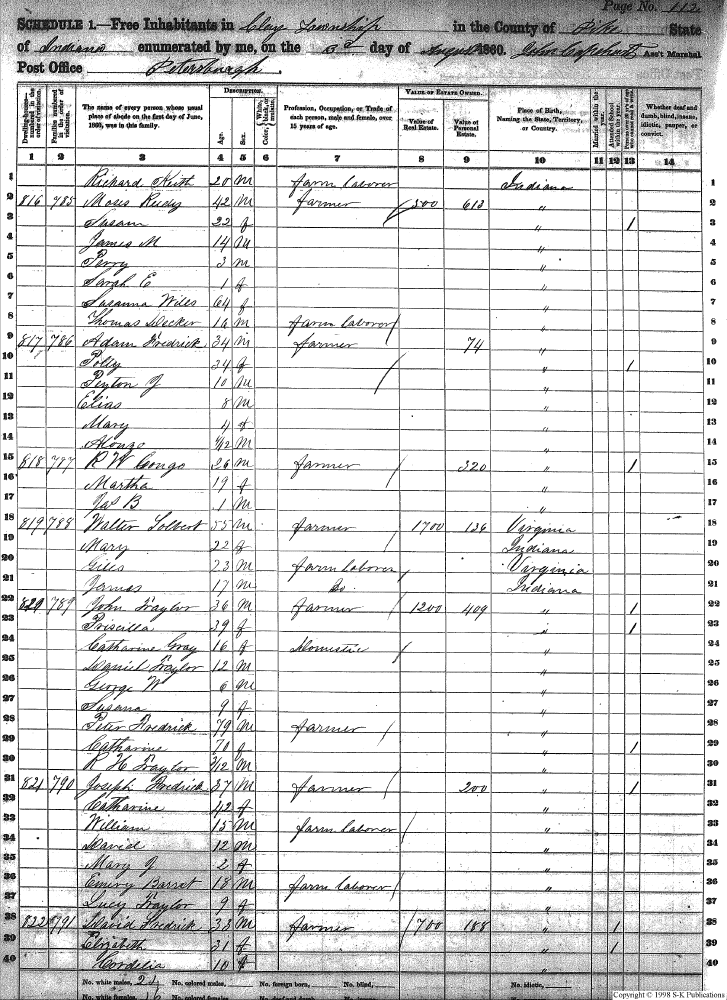 Page No. 112
SCHEDULE 1.—Free Inhabitants in Clay Township in the County of Pike State
of Indiana enumerated by me, on the 3d day of August 1860. John Capehart, Ass't Marshal
Post Office Petersburgh.
Dwelling-houses—numbered in the order of visitation.
Families numbered in the order of visitation.
The name of every person whose usual place of abode on the first day of June, 1860, was in this family.
DESCRIPTION.
Age.
Sex.
Color, White, black, or mulatto.
Profession, Occupation, or Trade of each person, male and female, over 15 years of age.
VALUE OF ESTATE OWNED.
Value of Real Estate.
Value of Personal Estate.
Place of Birth, Naming the State, Territory, or Country.
Married within the year.
Attended School within the year.
Whether deaf and dumb, blind, insane, idiotic, pauper, or convict.
1 2 3 4 5 6 7 8 9 10 11 12 13 14
1 Richard Keith 20 m farm laborer Indiana 1
2 816 785 Moses Reedy 42 m farmer 500 613 " 2
3 Susan 22 f " / 3
4 James M 14 m " 4
5 Perry 3 m " 5
6 Sarah E 1 f " 6
7 Susanna Wills 64 f " 7
8 Thomas Decker m farm laborer " 8
9 817 786 Adam Fredrick 34 m farmer 74 " 9
10 Polly 34 f " / 10
11 Peyton J 10 m " 11
12 Elias 8 m " 12
13 Mary 4 f " 13
14 Alonzo m " 14
15 818 787 R W Congo 26 m farmer 320 " / 15
16 Martha 19 f " 16
17 Jas B 1 m " 17
18 819 788 Walter Tolbert 55 m farmer 1700 136 Virginia 18
19 Mary 22 f Indiana 19
20 Giles 23 m farm laborer Virginia 20
21 James 17 m Do Indiana 21
22 820 789 John Traylor 36 m farmer 1200 409 " / 22
23 Priscilla 39 f " / 23
24 Catharine Gray 16 f Domestic " 24
25 Daniel Traylor 12 m " 25
26 George W 6 m " 26
27 Susana 9 f " 27
28 Peter Fredrick 79 m farmer " 28
29 Catharine 70 f " / 29
30 R H Traylor m " 30
31 821 790 Joseph Fredrick 37 m farmer 200 " / 31
32 Catharine 42 f " 32
33 William 15 m farm laborer " 33
34 David 12 m " 34
35 Mary J 2 f " 35
36 Emery Barret 18 m farm laborer " 36
37 Lucy Traylor 9 f " 37
38 822 791 David Fredrick 33 m farmer 700 188 " / 38
39 Elizabeth 31 f " / 39
40 Cordelia 10 f " 40
No. white males, No. colored males, No. foreign born, No. blind, No. idiotic,
No. white females,
Copyright © 1998 S-K Publications